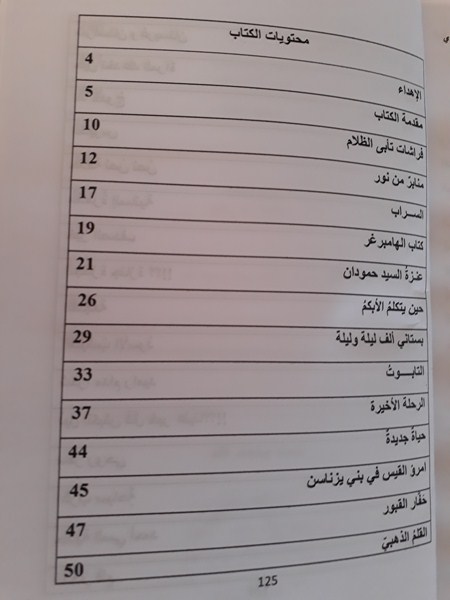 محتويات الكتاب
الإهداء 4
مقدمة الكتاب 5
فراشات تأبى الظلام 10
منابرُ من نور 12
الســراب 17
كتاب الهامبرغر 19
عنزةُ السيد حمودان 21
حين يتكلمُ الأبكمُ 26
بستاني ألف ليلة وليلة 29
التابــوتُ 33
الرحلة الأخيرة 37
حياةٌ جديدةٌ 44
امرؤ القيس في بني يزناسن 45
حَفَّار القبور 47
القلمُ الذّهبيّ 50
125